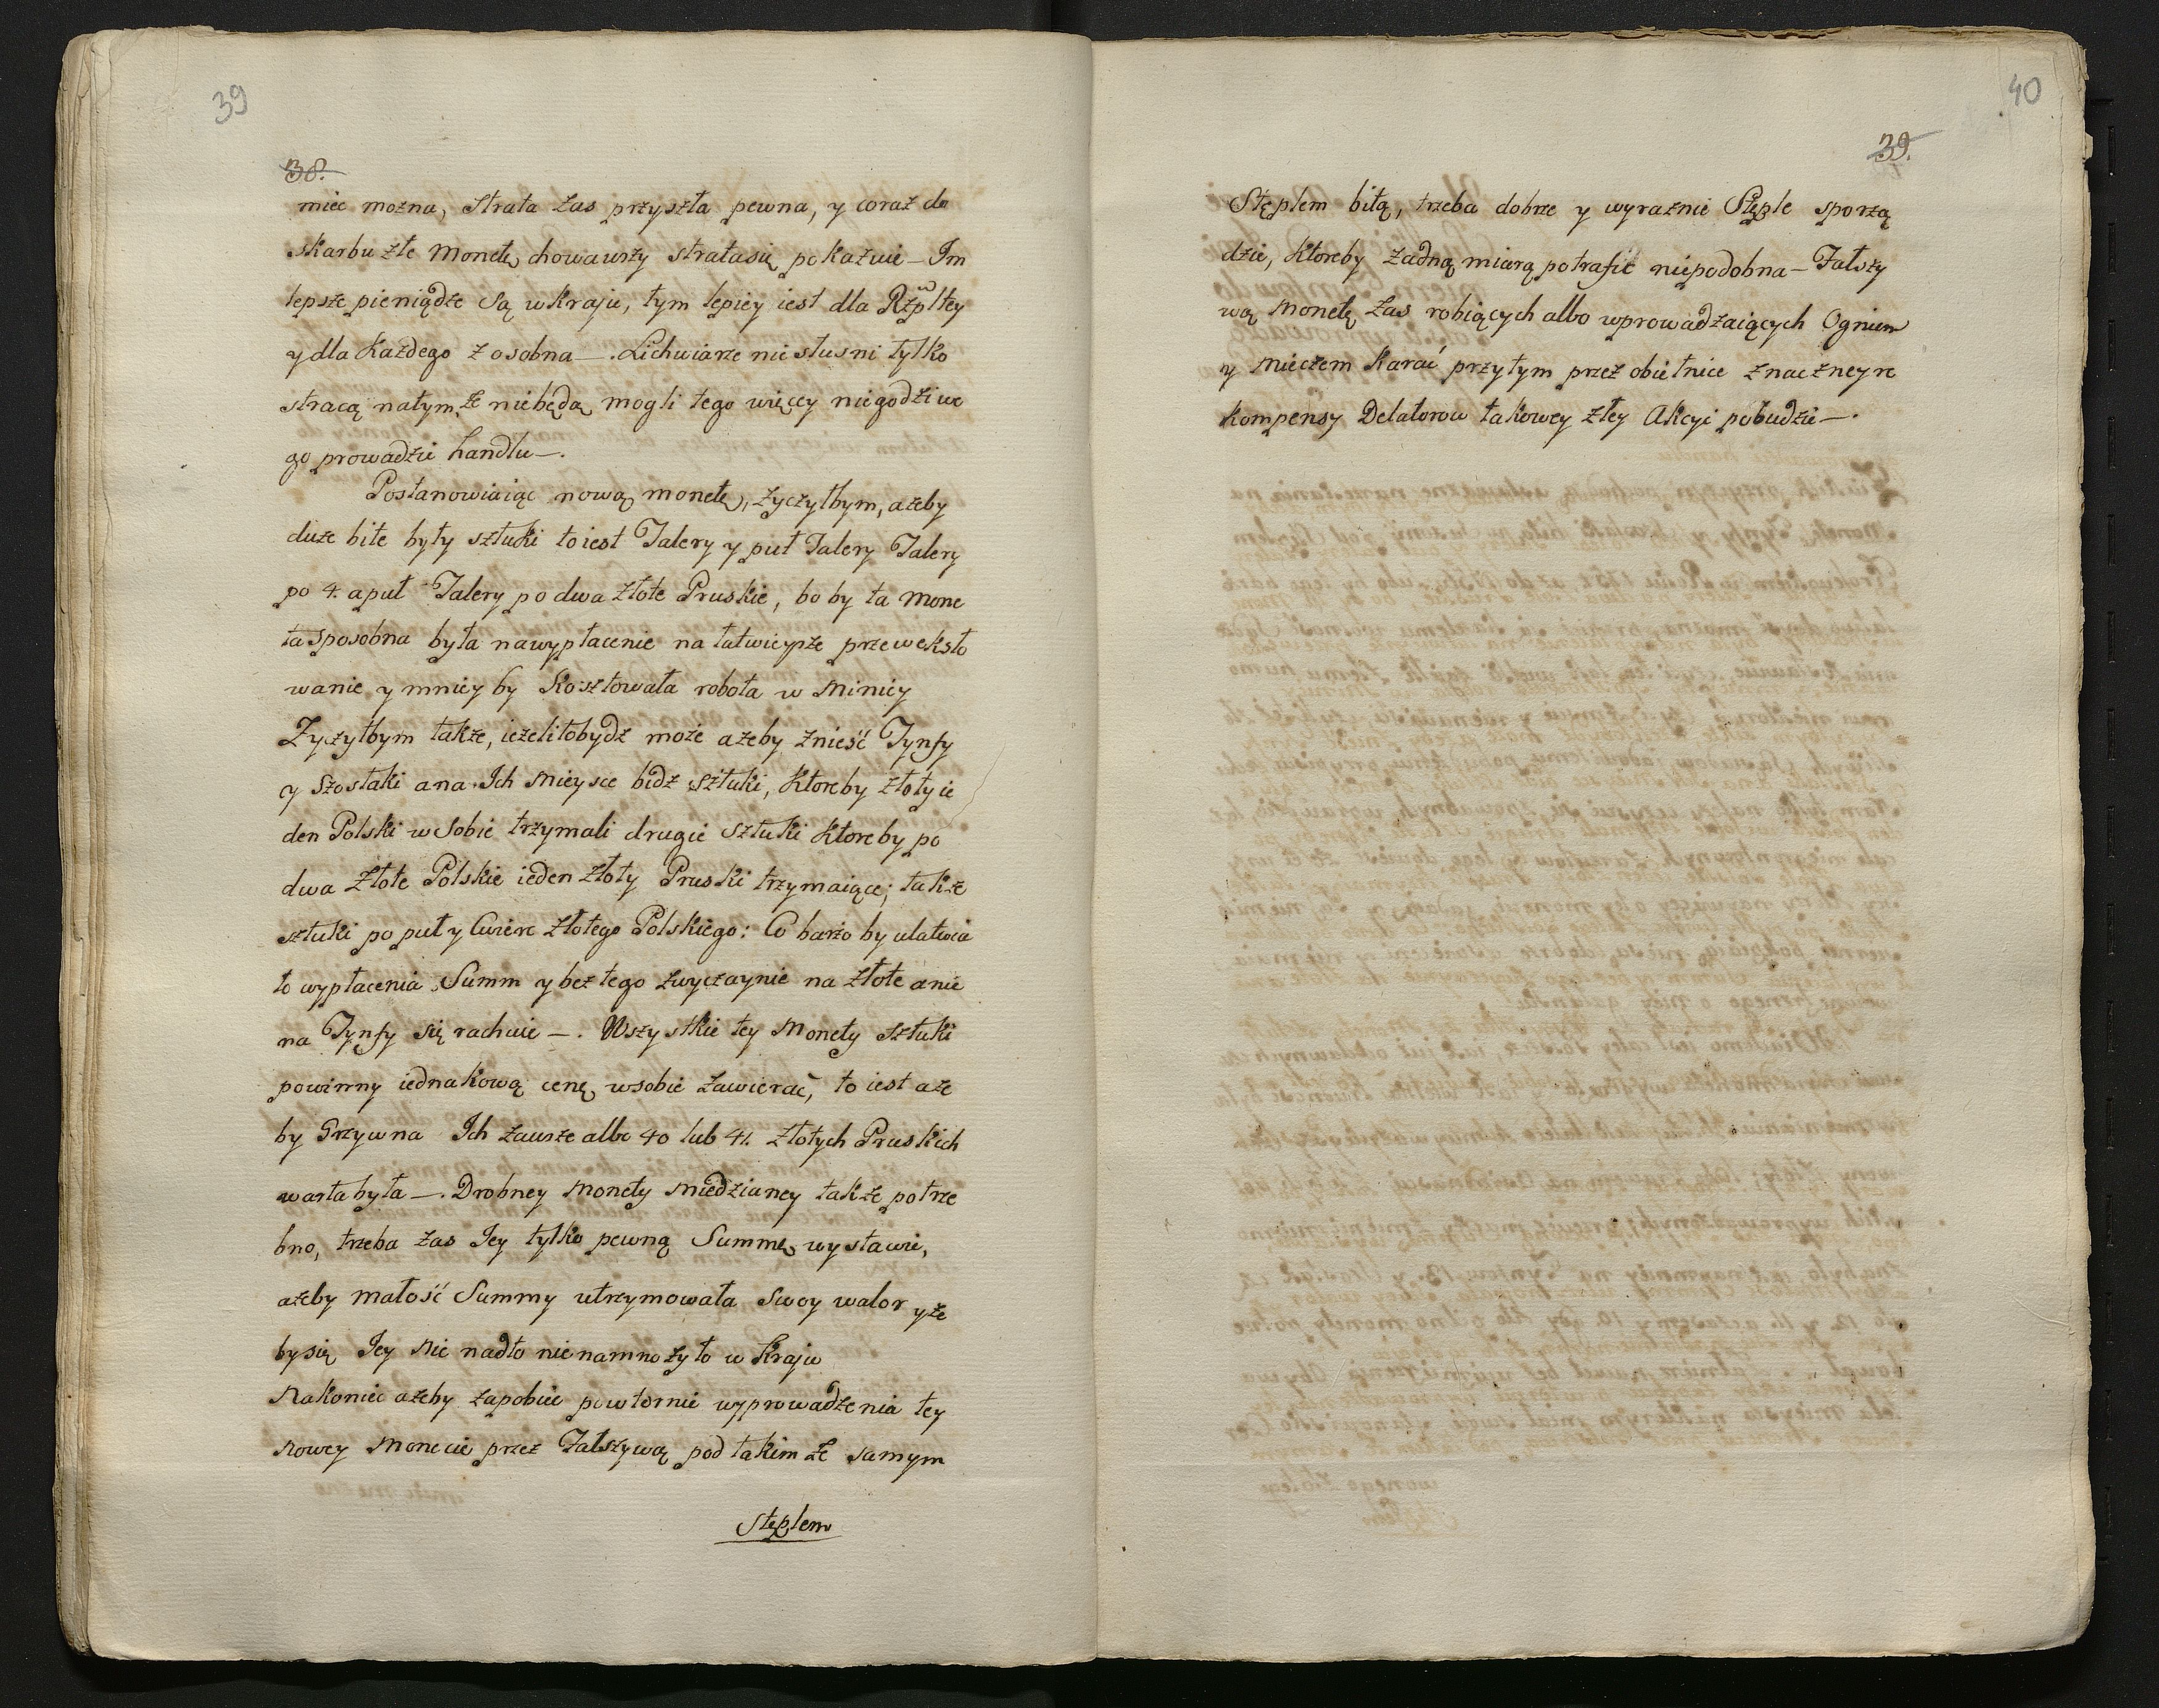 39
38.
miec mozna, strata zas przyszła pewna, y coraz do
skarbu złe Monetę chowawszy stratasię pokazuie — Im
lepsze pieniądze są wkraju, tym lepiey iest dla Rzpltey
y dla Kazdego z osobna —. Lichwiarze nie słusni tylko
stracą natym że niebędą mogli tego więcey niegodziwe
go prowadzic handlu —.
Postanowiaiąc nową monetę, zyczyłbym, azeby
duze bite były sztuki toiest Talery y puł Talery Talery
po 4. apuł Talery po dwa złote Pruskie, bo by ta Mone
ta sposobna była nawypłacenie na łatwieysze przewekslo
wanie y mniey by Kosztowała robota w Minicy
Zyczyłbym także, iezelitobydz może azeby znieść Tynfy
y Szostaki ana Ich Mieysce bidz sztuki, Ktoreby złoty ie
den Polski w Sobie trzymali drugie sztuki Ktoreby po
dwa Złote Polskie ieden złoty Pruski trzymaiące; także
sztuki po puł y Cwierc złotego Polskiego: Co barzo by ulatwia
ło wypłacenia Summ y bez tego zwyczaynie na złote anie
na Tynfy się rachuie —. Wszystkie tey Monety sztuki
powinny iednakową cenę wsobie zawierać, to iest aże
by Grzywna Ich zawsze albo 40 lub 41. złotych Pruskich
warta była —. Drobney Monety miedzianey także potrze
bno, trzeba zas Jey tylko pewną Summę wystawic,
ażeby małość Summy utrzymowała swoy walor yże
by się Jey Nie nadto nienamnożyło w Kraju
Nakoniec ażeby zapobiec powtornie wyprowadzenia tey
Nowey Monecie przez Fałszywą pod takim że samym
stęplem
40
39.
Stęplem bitą, trzeba dobrze y wyraznie Stęple sporzą
dzic, Ktoreby Zadną miarą potrafic niepodobna — Fałszy
wą Monetę zas robiących albo wprowadzaiących Ogniem
y Mieczem Karać przytym przez obietnice znaczney re
kompensy Delatorow takowey złey Akcyi pobudzic —.